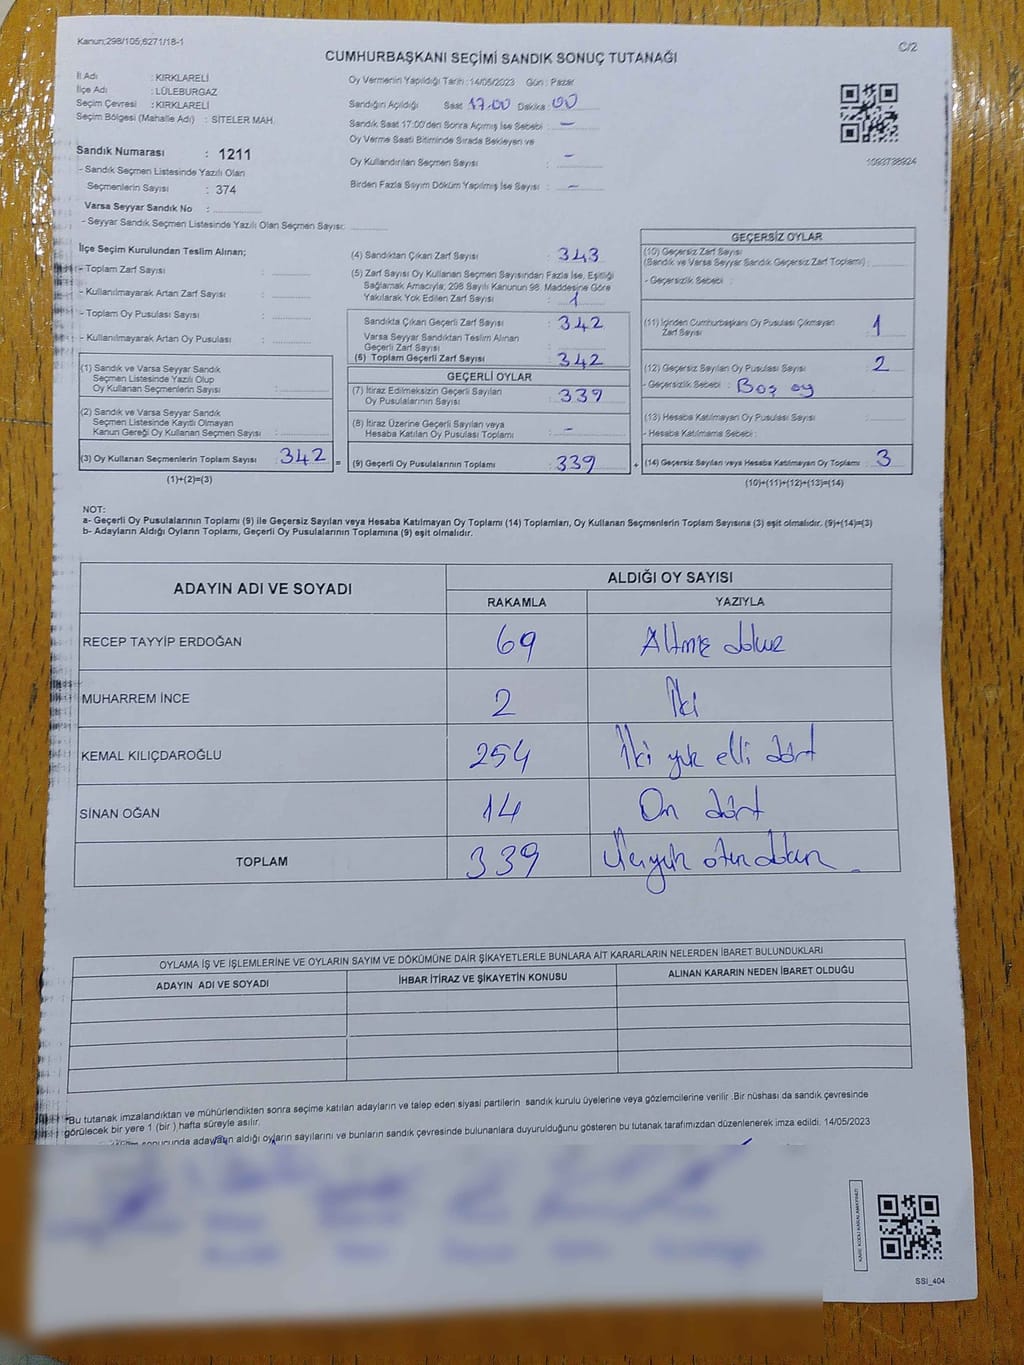 Kanun;298/105;6271/18-1
C/2
CUMHURBAŞKANI SEÇİMİ SANDIK SONUÇ TUTANAĞI
İl Adı : KIRKLARELİ
İlçe Adı : LÜLEBURGAZ
Seçim Çevresi : KIRKLARELİ
Seçim Bölgesi (Mahalle Adı) : SİTELER MAH.
Oy Vermenin Yapıldığı Tarih :14/05/2023 Gün : Pazar
Sandığın Açıldığı Saat 17:00 Dakika : 00
Sandık Saat 17:00'den Sonra Açılmış İse Sebebi : -
Oy Verme Saati Bitiminde Sırada Bekleyen ve
Oy Kullandırılan Seçmen Sayısı : -
Birden Fazla Sayım Döküm Yapılmış İse Sayısı : -
1093738924
Sandık Numarası : 1211
- Sandık Seçmen Listesinde Yazılı Olan
Seçmenlerin Sayısı : 374
Varsa Seyyar Sandık No :
- Seyyar Sandık Seçmen Listesinde Yazılı Olan Seçmen Sayısı:
İlçe Seçim Kurulundan Teslim Alınan;
- Toplam Zarf Sayısı :
- Kullanılmayarak Artan Zarf Sayısı :
- Toplam Oy Pusulası Sayısı :
- Kullanılmayarak Artan Oy Pusulası :
(1) Sandık ve Varsa Seyyar Sandık
Seçmen Listesinde Yazılı Olup
Oy Kullanan Seçmenlerin Sayısı :
(2) Sandık ve Varsa Seyyar Sandık
Seçmen Listesinde Kayıtlı Olmayan
Kanun Gereği Oy Kullanan Seçmen Sayısı :
(3) Oy Kullanan Seçmenlerin Toplam Sayısı : 342 =
(1)+(2)=(3)
(4) Sandıktan Çıkan Zarf Sayısı : 343
(5) Zarf Sayısı Oy Kullanan Seçmen Sayısından Fazla İse, Eşitliği
Sağlamak Amacıyla; 298 Sayılı Kanunun 98. Maddesine Göre
Yakılarak Yok Edilen Zarf Sayısı : 1
Sandıkta Çıkan Geçerli Zarf Sayısı : 342
Varsa Seyyar Sandıktan Teslim Alınan
Geçerli Zarf Sayısı :
(6) Toplam Geçerli Zarf Sayısı : 342
GEÇERLİ OYLAR
(7) İtiraz Edilmeksizin Geçerli Sayılan
Oy Pusulalarının Sayısı : 339
(8) İtiraz Üzerine Geçerli Sayılan veya
Hesaba Katılan Oy Pusulası Toplamı : -
(9) Geçerli Oy Pusulalarının Toplamı : 339 +
GEÇERSİZ OYLAR
(10) Geçersiz Zarf Sayısı
(Sandık ve Varsa Seyyar Sandık Geçersiz Zarf Toplamı) :
- Geçersizlik Sebebi :
(11) İçinden Cumhurbaşkanı Oy Pusulası Çıkmayan
Zarf Sayısı : 1
(12) Geçersiz Sayılan Oy Pusulası Sayısı : 2
- Geçersizlik Sebebi : Boş oy
(13) Hesaba Katılmayan Oy Pusulası Sayısı :
- Hesaba Katılmama Sebebi :
(14) Geçersiz Sayılan veya Hesaba Katılmayan Oy Toplamı : 3
(10)+(11)+(12)+(13)=(14)
NOT:
a- Geçerli Oy Pusulalarının Toplamı (9) ile Geçersiz Sayılan veya Hesaba Katılmayan Oy Toplamı (14) Toplamları, Oy Kullanan Seçmenlerin Toplam Sayısına (3) eşit olmalıdır. (9)+(14)=(3)
b- Adayların Aldığı Oyların Toplamı, Geçerli Oy Pusulalarının Toplamına (9) eşit olmalıdır.
ADAYIN ADI VE SOYADI
ALDIĞI OY SAYISI
RAKAMLA YAZIYLA
RECEP TAYYİP ERDOĞAN 69 Altmış dokuz
MUHARREM İNCE 2 İki
KEMAL KILIÇDAROĞLU 254 İki yüz elli dört
SİNAN OĞAN 14 On dört
TOPLAM 339 Üçyüz otuz dokuz
OYLAMA İŞ VE İŞLEMLERİNE VE OYLARIN SAYIM VE DÖKÜMÜNE DAİR ŞİKAYETLERLE BUNLARA AİT KARARLARIN NELERDEN İBARET BULUNDUKLARI
ADAYIN ADI VE SOYADI İHBAR İTİRAZ VE ŞİKAYETİN KONUSU ALINAN KARARIN NEDEN İBARET OLDUĞU
*Bu tutanak imzalandıktan ve mühürlendikten sonra seçime katılan adayların ve talep eden siyasi partilerin sandık kurulu üyelerine veya gözlemcilerine verilir .Bir nüshası da sandık çevresinde
görülecek bir yere 1 (bir ) hafta süreyle asılır.
sonucunda adayların aldığı oyların sayılarını ve bunların sandık çevresinde bulunanlara duyurulduğunu gösteren bu tutanak tarafımızdan düzenlenerek imza edildi. 14/05/2023
SSI_404